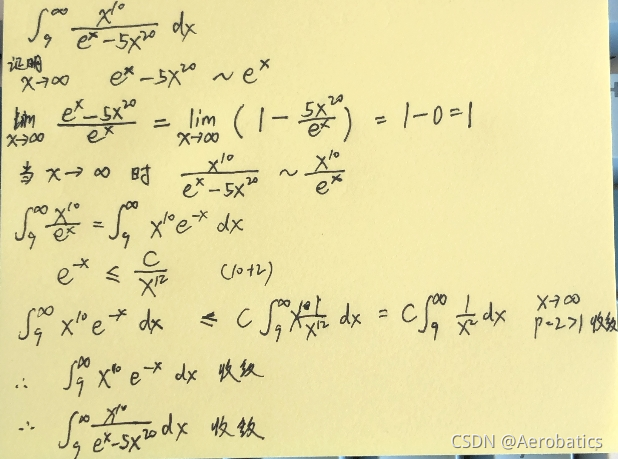 ∫₉^∞ x¹⁰/(eˣ-5x²⁰) dx
证明
x→∞ eˣ-5x²⁰ ~ eˣ
lim x→∞ (eˣ-5x²⁰)/eˣ = lim x→∞ (1 - 5x²⁰/eˣ) = 1-0=1
当 x→∞ 时 x¹⁰/(eˣ-5x²⁰) ~ x¹⁰/eˣ
∫₉^∞ x¹⁰/eˣ = ∫₉^∞ x¹⁰e⁻ˣ dx
e⁻ˣ ≤ C/x¹² (10+2)
∫₉^∞ x¹⁰e⁻ˣ dx ≤ C∫₉^∞ x¹⁰ 1/x¹² dx = C∫₉^∞ 1/x² dx x→∞ p=2>1 收敛
∴ ∫₉^∞ x¹⁰e⁻ˣ dx 收敛
∴ ∫₉^∞ x¹⁰/(eˣ-5x²⁰) dx 收敛
CSDN @Aerobatics